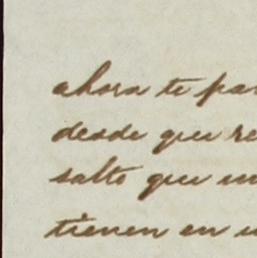 ahora te pa
desde que re
salto que
tienen en